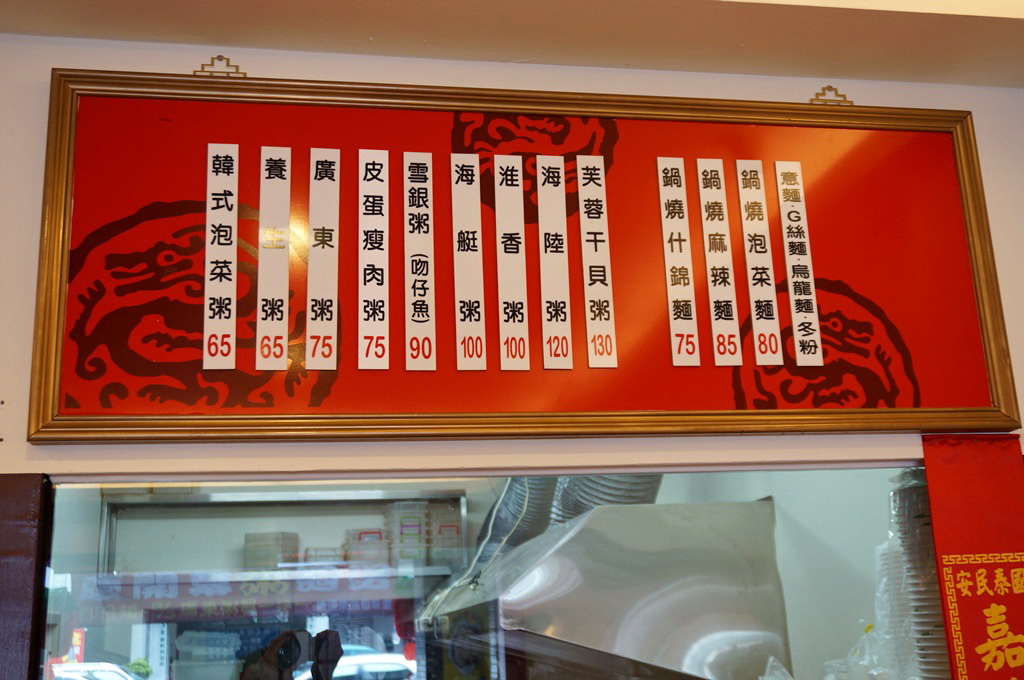 韓式泡菜粥65
養生粥65
廣東粥75
皮蛋瘦肉粥75
雪銀粥(吻仔魚)90
海艇粥100
淮香粥100
海陸粥120
芙蓉干貝粥130
鍋燒什錦麵75
鍋燒麻辣麵85
鍋燒泡菜麵80
意麵·G絲麵·烏龍麵·冬粉
安民泰國
嘉